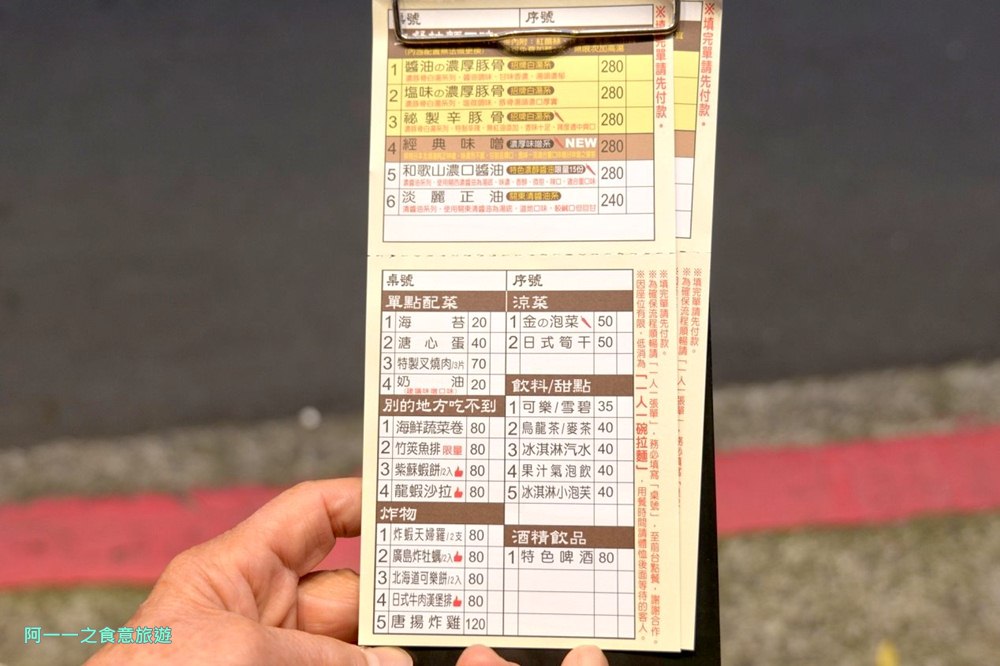 桌號 序號
1 醬油の濃厚豚骨 招牌白湯系 280
2 塩味の濃厚豚骨 招牌白湯系 280
3 祕製辛豚骨 招牌白湯系 280
4 經典味噌 濃厚味噌系 NEW 280
5 和歌山濃口醬油 特色濃醇醬油 限量15份 280
6 淡麗正油 關東清醬油系 240
※填完單請先付款。
※填完單請先付款。
桌號 序號
單點配菜
1 海苔 20
2 溏心蛋 40
3 特製叉燒肉/3片 70
4 奶油 20
(建議味噌口味)
別的地方吃不到
1 海鮮蔬菜卷 80
2 竹筴魚排 限量 80
3 紫蘇蝦餅/2入 80
4 龍蝦沙拉 80
炸物
1 炸蝦天婦羅/2支 80
2 廣島炸牡蠣/2入 80
3 北海道可樂餅/2入 80
4 日式牛肉漢堡排 80
5 唐揚炸雞 120
涼菜
1 金の泡菜 50
2 日式筍干 50
飲料/甜點
1 可樂/雪碧 35
2 烏龍茶/麥茶 40
3 冰淇淋汽水 40
4 果汁氣泡飲 40
5 冰淇淋小泡芙 40
酒精飲品
1 特色啤酒 80
※填完單請先付款。
※為確保流程順暢請「一人一張單」，務必填寫「桌號」，至前台點餐，謝謝合作。
※因座位有限，低消為「一人一碗拉麵」，用餐時間請體恤後面等待的客人。
※填完單請先付款。
阿一一之食意旅遊